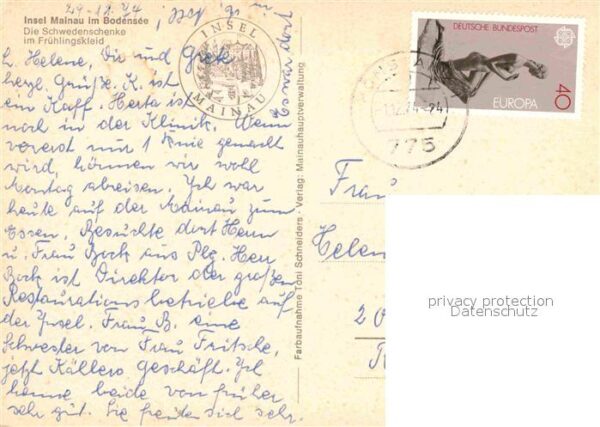 29.12.74
Insel Mainau im Bodensee
Die Schwedenschenke
im Frühlingskleid
L. Helene, Dir und
herzl. Grüße. K. ist
ein Kaff. Herta ist
noch in der Klinik. Wenn
vorerst nur 1 Knie gemacht
wird, können wir wohl
Montag abreisen. Ich war
heute auf der Mainau zum
Essen. Besuchte dort Herrn
u. Frau Bock aus Plg. Herr
Bock ist Direktor der großen
Restaurationsbetriebe auf
der Insel. Frau B. eine
Schwester von Frau Fritsche,
jetzt Källero Geschäft. Ich
kenne beide von früher
sehr gut. Sie freuten sich sehr.
Es war dort
INSEL
MAINAU
Farbaufnahme Toni Schneiders · Verlag: Mainauhauptverwaltung
DEUTSCHE BUNDESPOST
EUROPA
40
775
Frau
Helen
20
privacy protection
Datenschutz